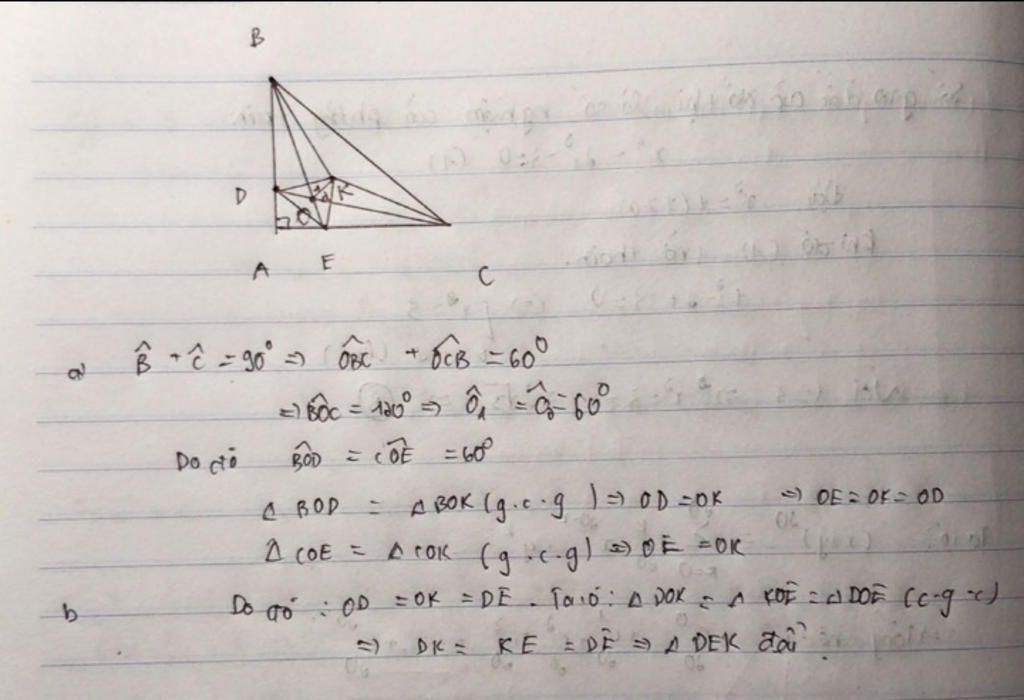 B
D
K
O
A E C
a) B̂ + Ĉ = 90° => OBC + OCB = 60°
=> BOC = 120° => Ô₁ = Ô₂ = 60°
Do đó BOD = COE = 60°
Δ BOD = Δ BOK (g.c.g) => OD = OK => OE = OK = OD
Δ COE = Δ COK (g.c.g) => OE = OK
b Do đó : OD = OK = DE . Ta có : Δ DOK = Δ KOE = Δ DOE (c-g-c)
=> DK = KE = DE => Δ DEK đều.